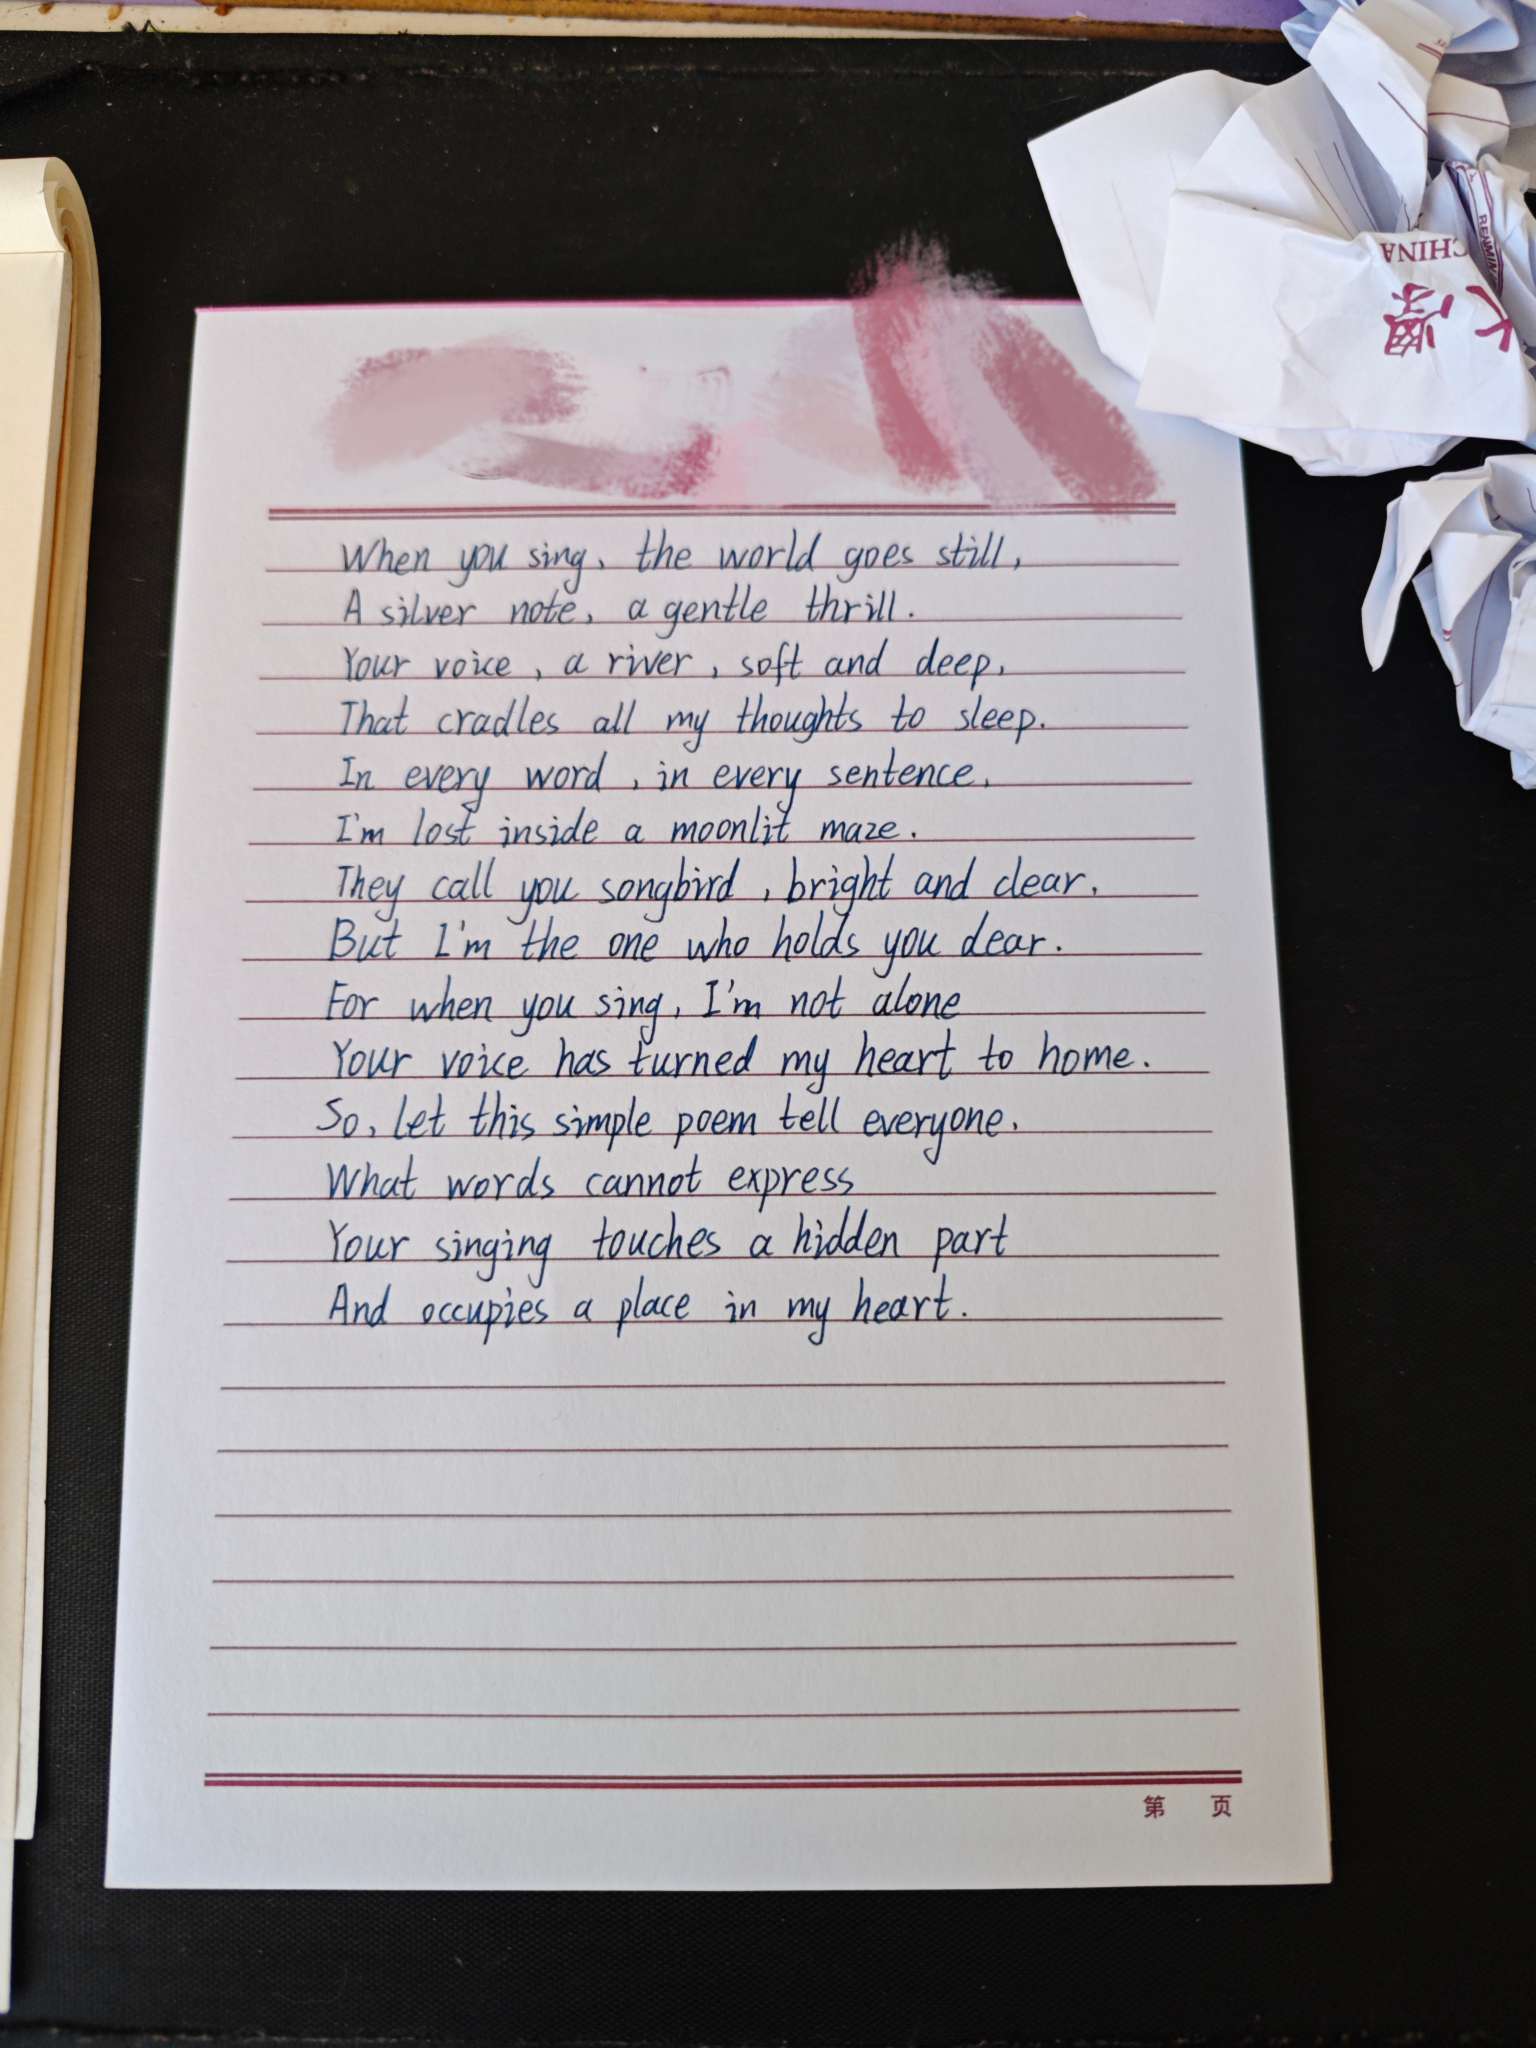 When you sing, the world goes still,
A silver note, a gentle thrill.
Your voice, a river, soft and deep,
That cradles all my thoughts to sleep.
In every word, in every sentence,
I'm lost inside a moonlit maze.
They call you songbird, bright and clear,
But I'm the one who holds you dear.
For when you sing, I'm not alone
Your voice has turned my heart to home.
So, let this simple poem tell everyone,
What words cannot express
Your singing touches a hidden part
And occupies a place in my heart.
第 页
CHINA